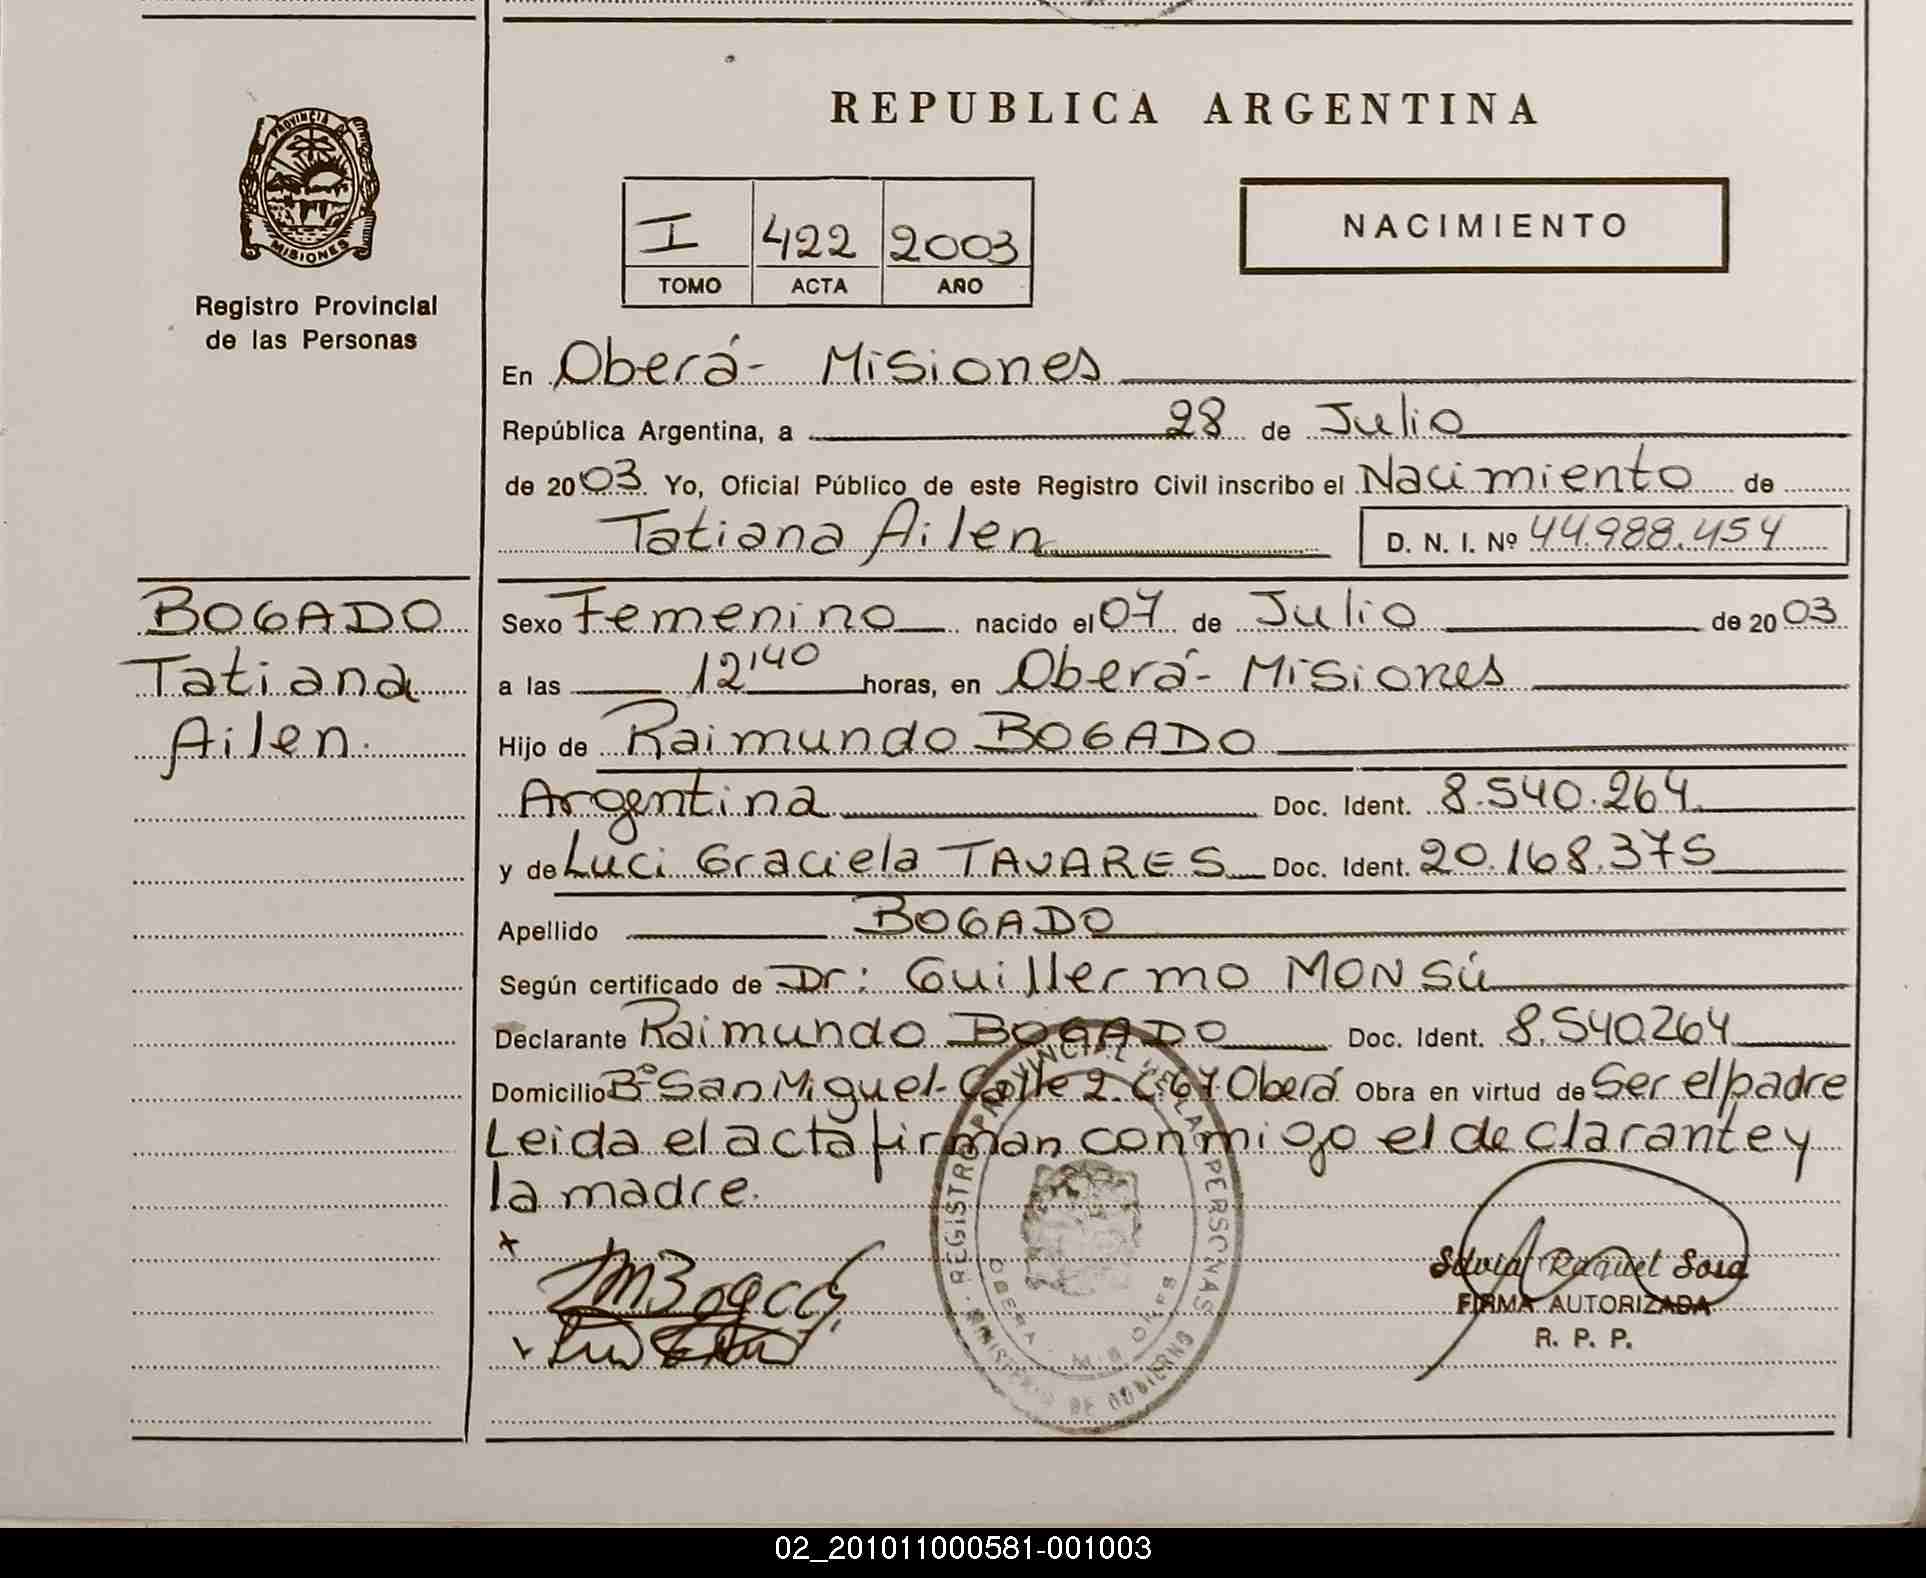 PROVINCIA DE
MISIONES
Registro Provincial
de las Personas
REPUBLICA ARGENTINA
I 422 2003
TOMO ACTA AÑO
NACIMIENTO
En Oberá- Misiones
República Argentina, a 28 de Julio
de 2003 Yo, Oficial Público de este Registro Civil inscribo el Nacimiento de
Tatiana Ailen D. N. I. Nº 44.988.454
BOGADO
Tatiana
Ailen.
Sexo Femenino nacido el 07 de Julio de 2003
a las 12'40 horas, en Oberá- Misiones
Hijo de Raimundo BOGADO
Argentina Doc. Ident. 8.540.264
y de Luci Graciela TAVARES Doc. Ident. 20.168.375
Apellido BOGADO
Según certificado de Dr: Guillermo MONSÚ
Declarante Raimundo BOGADO Doc. Ident. 8.540264
Domicilio Bº San Miguel- Calle 2. C.67. Oberá Obra en virtud de Ser el padre
Leida el acta firman conmigo el declarante y
la madre.
REGISTRO PROVINCIAL DE LAS PERSONAS
OBERA MISIONES
MINISTERIO DE GOBIERNO
Silvia Raquel Sosa
FIRMA AUTORIZADA
R. P. P.
02_201011000581-001003